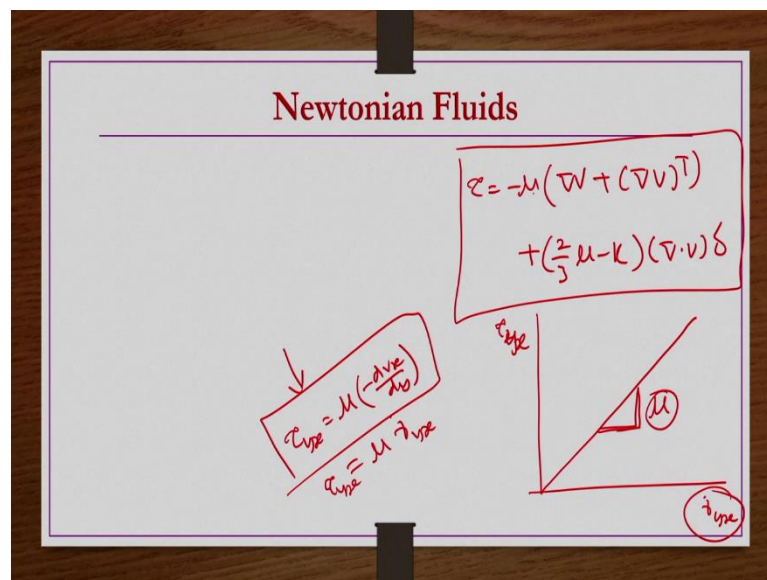 Newtonian Fluids
τ = -μ(∇V + (∇V)ᵀ)
+ (2/3 μ - K)(∇·V)δ
τyx
μ
γ̇yx
τyx = μ(-dvx/dy)
τyx = μ γ̇yx